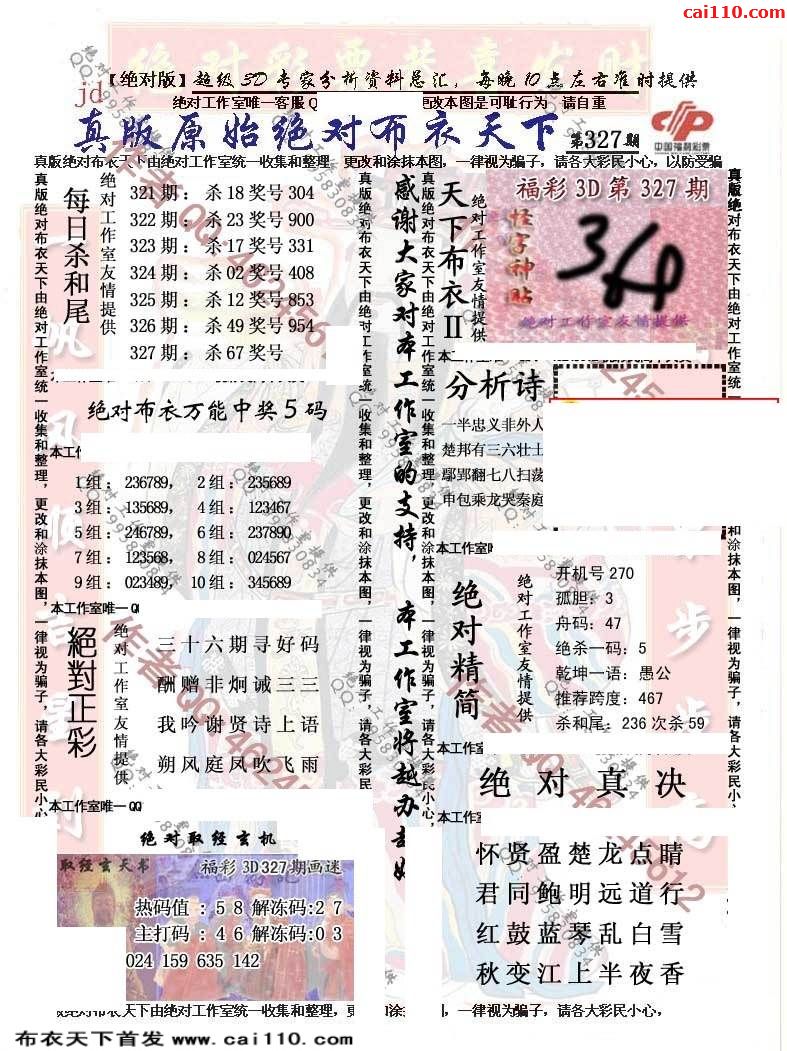 cai110.com
【绝对版】超级3D专家分析资料总汇，每晚10点左右准时提供
jd
绝对工作室唯一客服Q 更改本图是可耻行为 请自重
真版原始绝对布衣天下 第327期
中国福利彩票
真版绝对布衣天下由绝对工作室统一收集和整理，更改和涂抹本图，一律视为骗子，请各大彩民小心，以防受骗
真版绝对布衣天下由绝对工作室统一收集和整理，更改和涂抹本图，一律视为骗子，请各大彩民小心
每日杀和尾
绝对工作室友情提供
321期：杀18奖号304
322期：杀23奖号900
323期：杀17奖号331
324期：杀02奖号408
325期：杀12奖号853
326期：杀49奖号954
327期：杀67奖号
绝对布衣万能中奖5码
本工作
1组：236789， 2组：235689
3组：135689， 4组：123467
5组：246789， 6组：237890
7组：123568， 8组：024567
9组：023489， 10组：345689
本工作室唯一Q
絕對正彩
绝对工作室友情提供
三十六期寻好码
酬赠非炯诫三三
我吟谢贤诗上语
朔风庭凤吹飞雨
本工作室唯一QQ
绝对取经玄机
取经玄天书
福彩3D327期画迷
热码值：58解冻码:27
主打码：46解冻码:03
024 159 635 142
真版绝对布衣天下由绝对工作室统一收集和整理，更改和涂抹本图，一律视为骗子，请各大彩民
感谢大家对本工作室的支持，本工作室将越办
真版绝对布衣天下由绝对工作室统一收集和整理，更改和涂抹本图，一律视为骗子，请各大彩民小心，
天下布衣II
绝对工作室友情提供
福彩3D第327期
怪字神贴
绝对工作室友情提供
分析诗
一半忠义非外人
楚邦有三六壮士
鄢郢翻七八扫荡
申包乘龙哭秦庭
本工作室
绝对精简
绝对工作室友情提供
开机号270
孤胆：3
舟码：47
绝杀一码：5
乾坤一语：愚公
推荐跨度：467
杀和尾：236次杀59
本工作室
绝对真决
本工作室
怀贤盈楚龙点晴
君同鲍明远道行
红鼓蓝琴乱白雪
秋变江上半夜香
真版绝对布衣天下由绝对工作室统一收集和整理，更改和涂抹本图，一律视为骗子，请各大彩民小心
绝对布衣天下由绝对工作室统一收集和整理，更 和涂 ，一律视为骗子，请各大彩民小心，
布衣天下首发 www.cai110.com